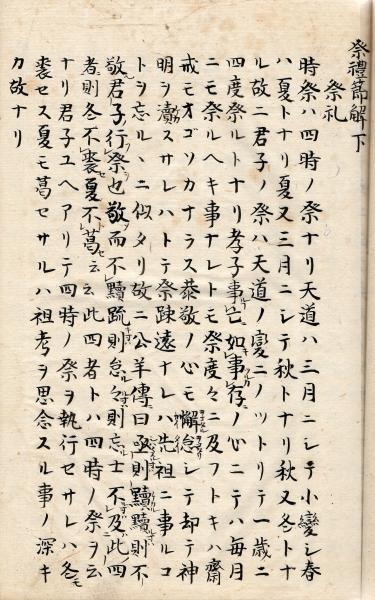 祭禮節解下
祭礼
時祭ハ四時ノ祭ナリ天道ハ三月ニシテ小變シ春
ハ夏トナリ夏又三月ニシテ秋トナリ秋又冬トナ
ル故ニ君子ノ祭ハ天道ノ變ニノツトリテ一歳ニ
四度祭ルトナリ孝子事亡如事存ノ心ニテハ毎月
ニモ祭ルヘキ事ナレトモ祭度々ニ及フトキハ齋
戒モオゴソカナラス恭敬ノ心モ懈怠シテ却テ神
明ヲ瀆スサレハトテ祭踈遠ナレハ先祖ニ事ルコ
トヲ忘ルヽニ似タリ故ニ公羊傳曰亟則黷黷則不
敬君子行祭也敬而不黷疏則怠々則忘士不及此四
者則冬不裘夏不葛云云此四者トハ四時ノ祭ヲ云
ナリ君子ユヘアリテ四時ノ祭ヲ執行セサレハ冬モ
裘セス夏モ葛セサルハ祖考ヲ思念スル事ノ深キ
カ故ナリ